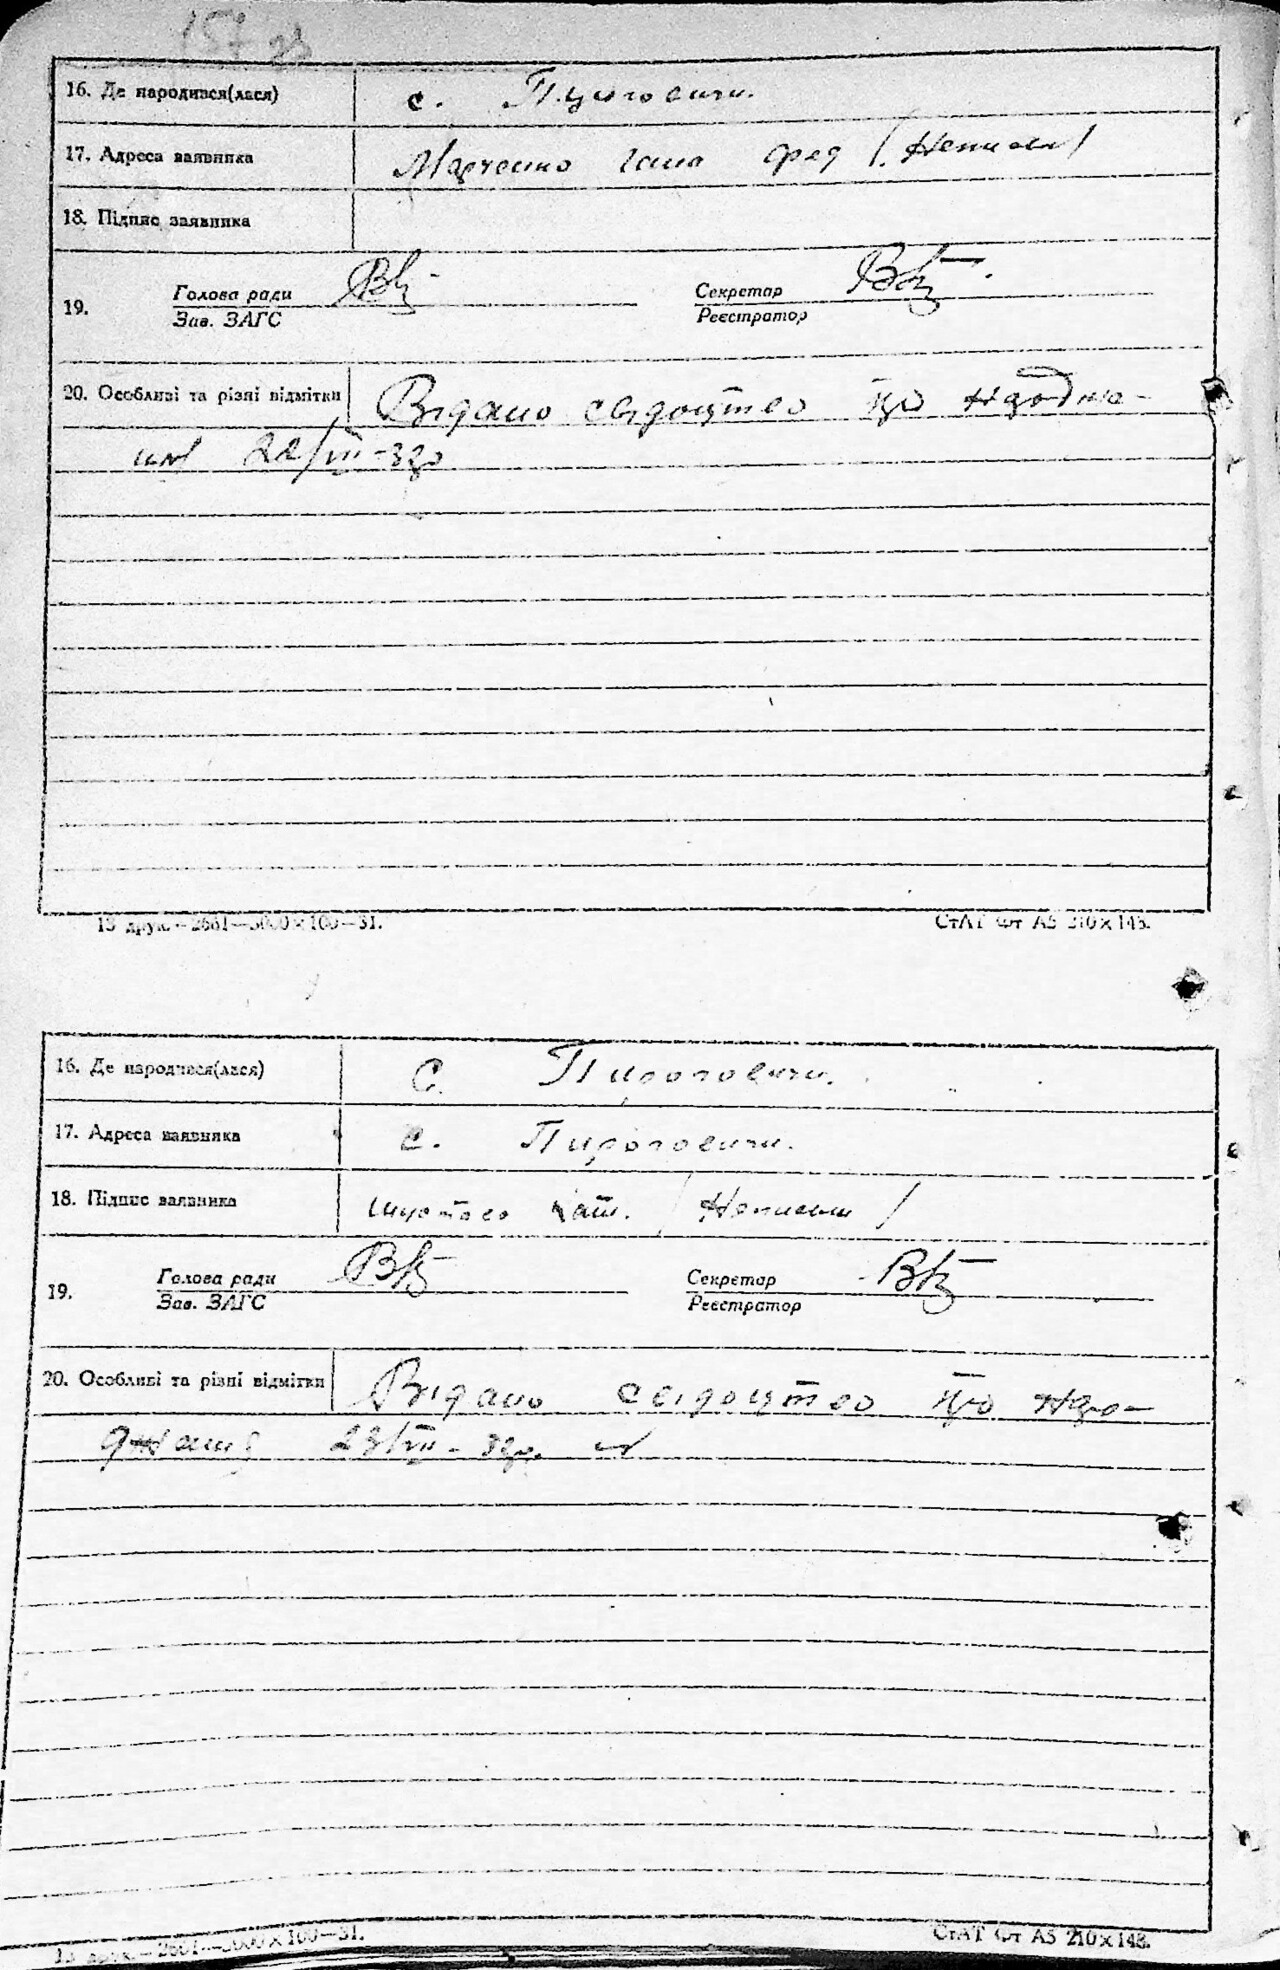 157 зв
16. Де народився(лася) с. Пироговичи.
17. Адреса заявника Марченко Гана Фед (Неписьм)
18. Підпис заявника
19. Голова ради Секретар
Зав. ЗАГС Реєстратор
20. Особливі та різні відмітки Видано свідоцтво про народже-
ння 22/VII-32р
13 друк.—2681—5000×100—31. СтАТ Фт А5 210×148.
16. Де народився(лася) С. Пироговичи.
17. Адреса заявника с. Пироговичи.
18. Підпис заявника Кат. /Неписьм/
19. Голова ради Секретар
Зав. ЗАГС Реєстратор
20. Особливі та різні відмітки Видано свідоцтво про наро-
дження 23/VII-32р.
13 друк.—2681—5000×100—31. СтАТ Фт А5 210×148.